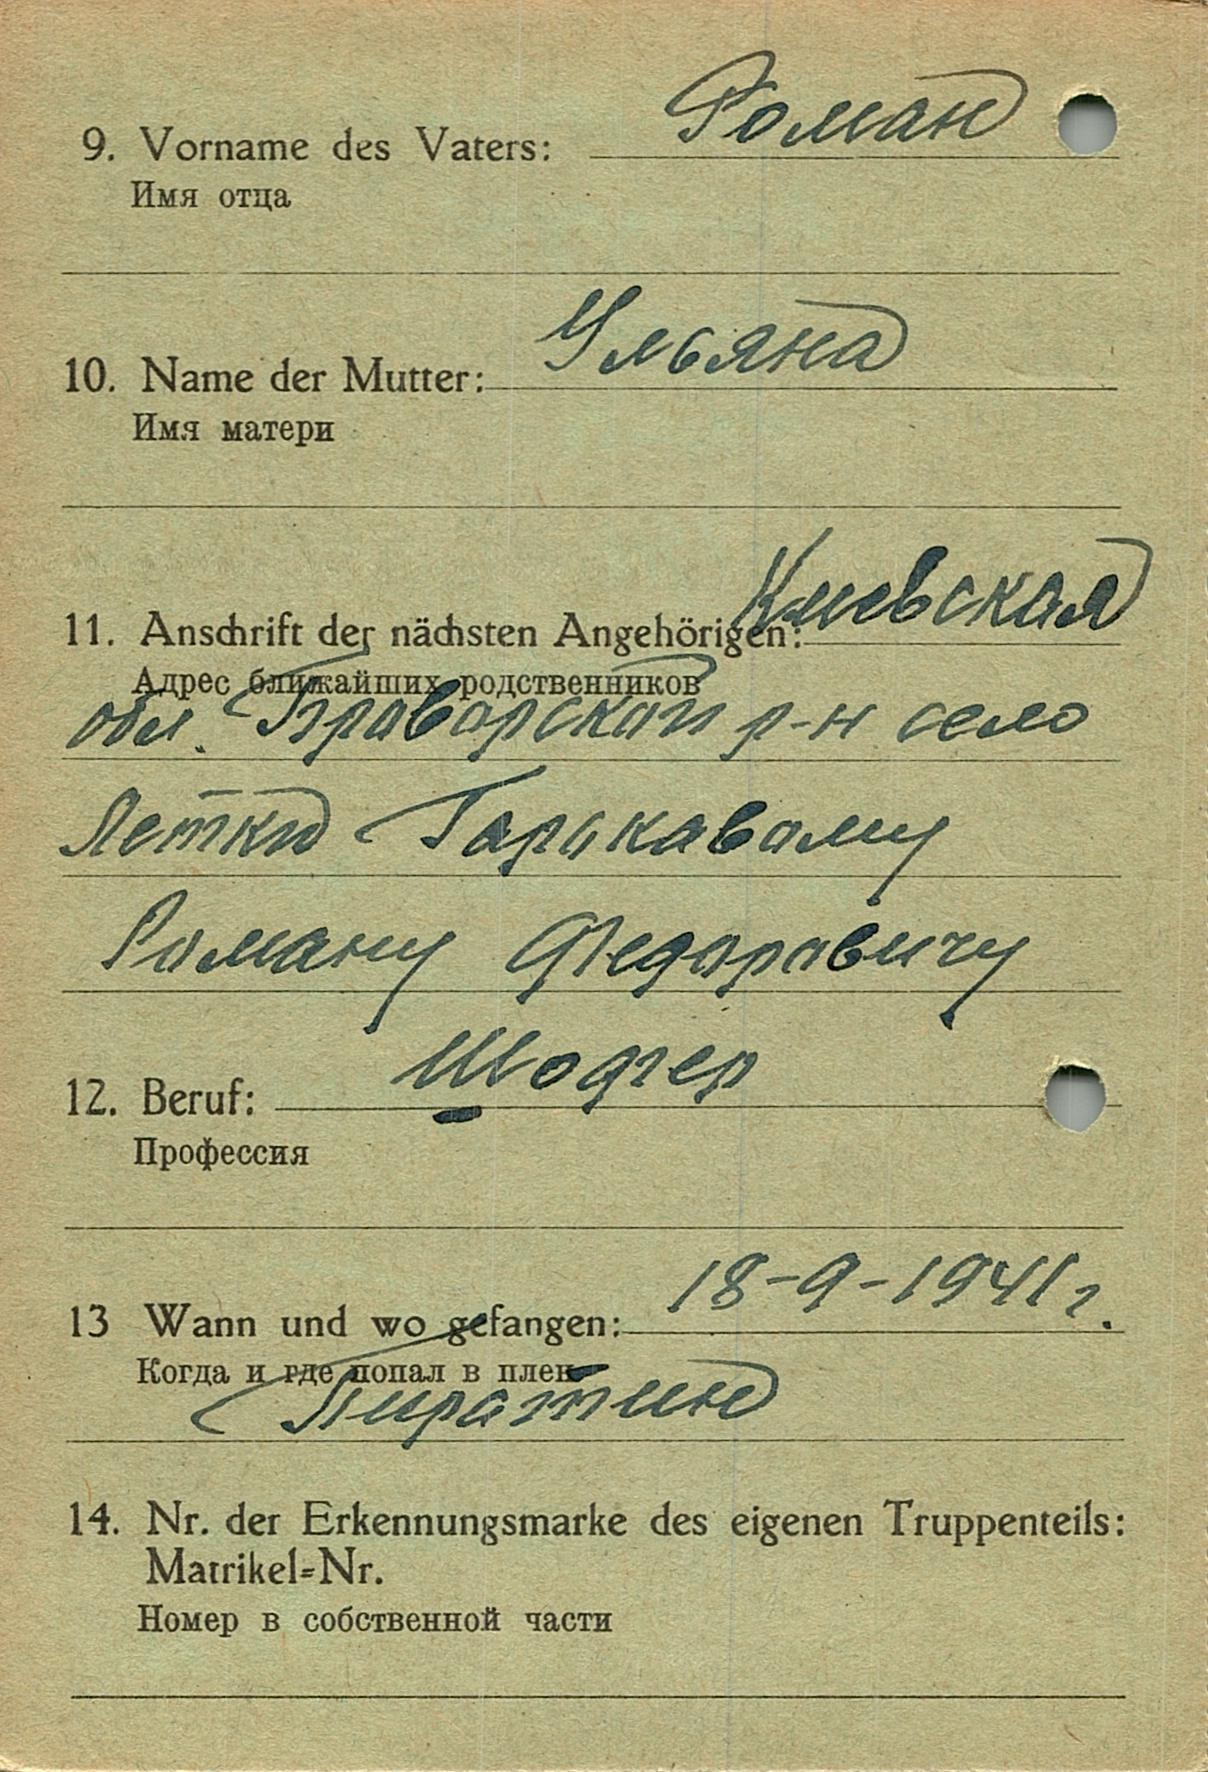 9. Vorname des Vaters: Роман
Имя отца
10. Name der Mutter: Ульяна
Имя матери
11. Anschrift der nächsten Angehörigen: Киевская
Адрес ближайших родственников
обл. Браварской р-н село
Летки Гаркавому
Роману Федоравичу
12. Beruf: Шофер
Профессия
13 Wann und wo gefangen: 18-9-1941 г.
Когда и где попал в плен
Пиратин
14. Nr. der Erkennungsmarke des eigenen Truppenteils:
Matrikel=Nr.
Номер в собственной части